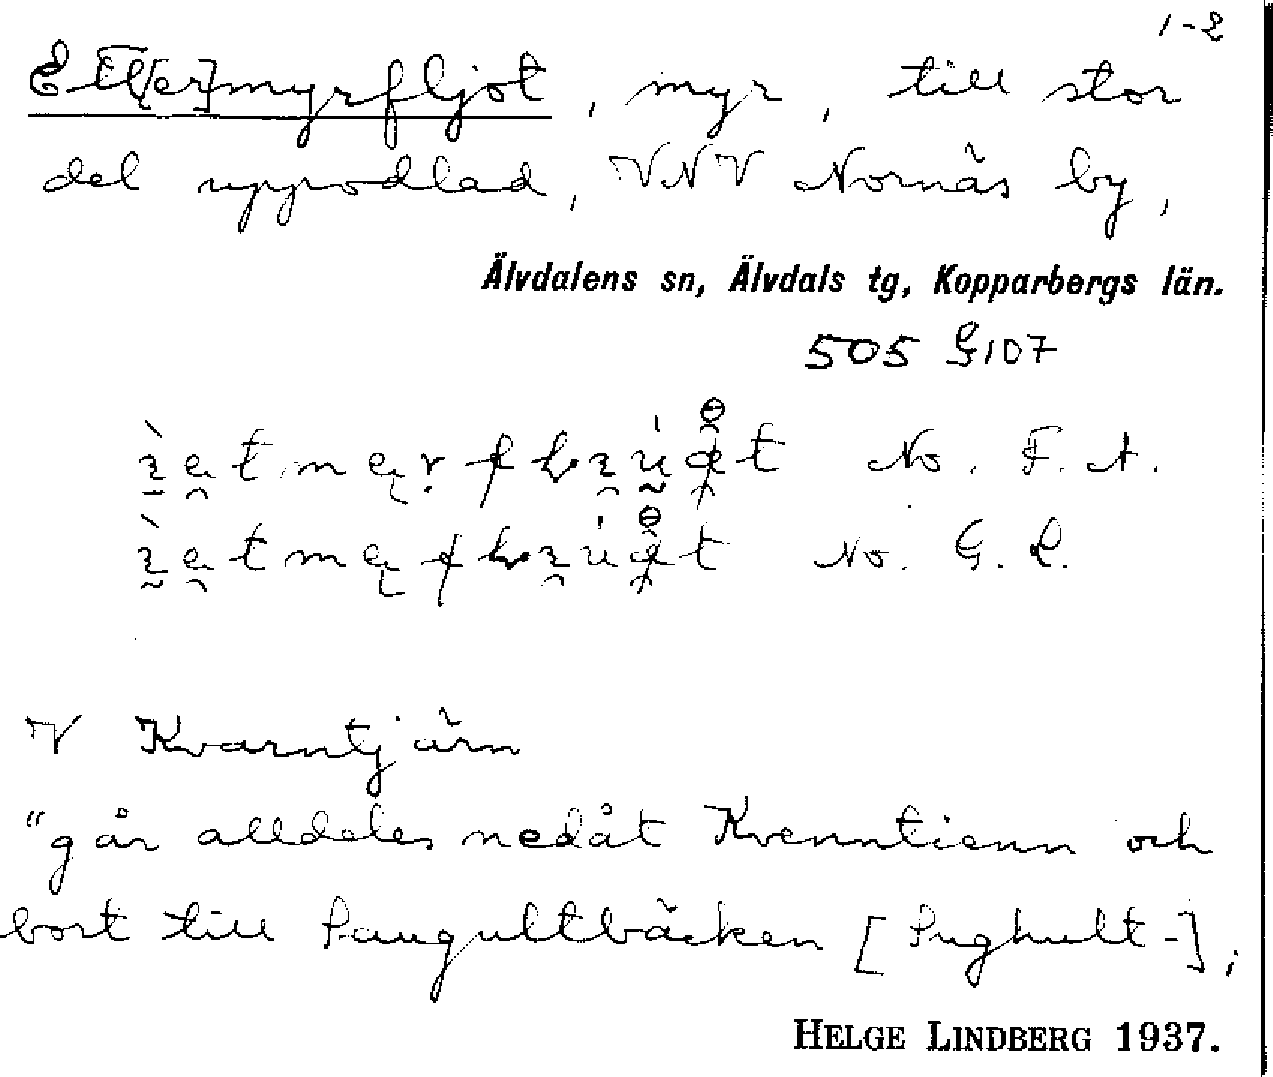 1-2
Ett[er]myrfljot, myr, till stor
del uppodlad, VNV Nornäs by,
Älvdalens sn, Älvdals tg, Kopparbergs län.
505 G107
No. F. A.
No. G. L.
V Kvarntjärn
"går alldeles nedåt Kvenntienn och
bort till Paugultbäcken [Pughult-];
HELGE LINDBERG 1937.